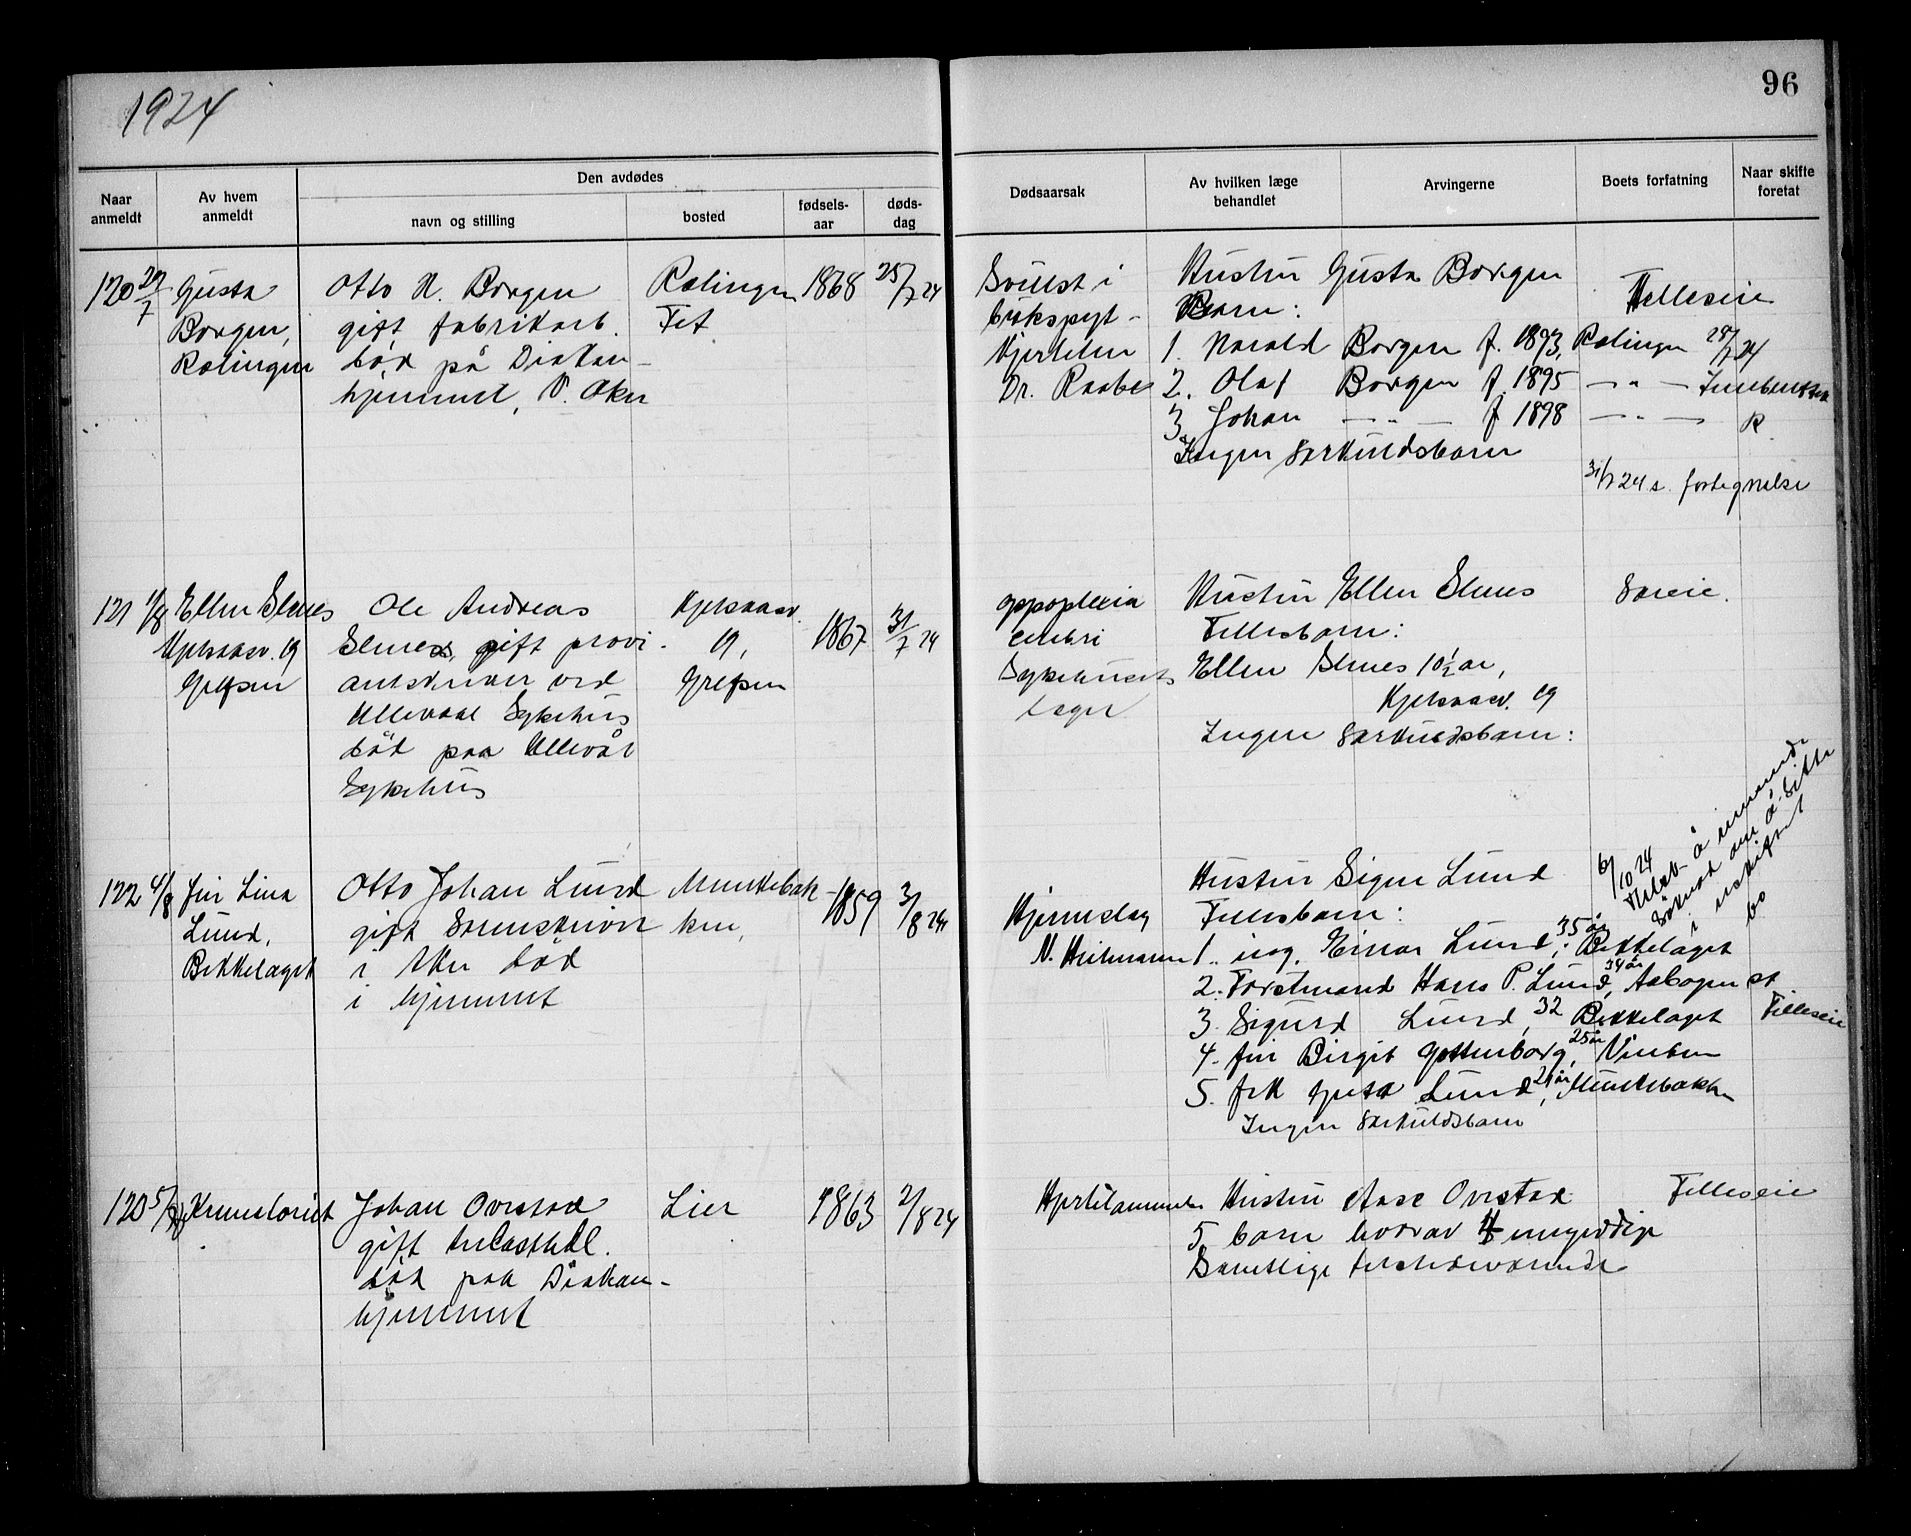 1924
96
Naar anmeldt
Av hvem anmeldt
Den avdødes
navn og stilling
bosted
fødsels-aar
døds-dag
Dødsaarsak
Av hvilken læge behandlet
Arvingerne
Boets forfatning
Naar skifte foretat
120 29/7 Gusta Borgen, Rolingen
Otto H. Borgen
gift fabrikarb.
død på Diakon-
hjemmet, V. Aker
Rolingen
Fet
1868
25/7 24
Svulst i
bukspyt-
kjertelen
Dr. Raabe
Hustru Gusta Borgen
Barn:
1. Harald Borgen f. 1893, Rolingen
2. Olaf Borgen f. 1895 — " —
3. Johan — " — f 1898 — " —
Ingen særkuldsbarn
Felleseie
28/7 24
R
31/7 24 s. fortegnelse
121 1/8 Ellen Slenes
Kjelsaasv. 19
Grefsen
Ole Andreas
Slenes, gift provi-
antskriver ved
Ullevaal Sykehus
død paa Ullevål
Sykehus
Kjelsaasv.
19,
Grefsen
1867
31/7 24
appoplexia
cerebri
Sykehusets
læger
Hustru Ellen Slenes
Fellesbarn:
Ellen Slenes 10½ år,
Kjelsaasv. 19
Ingen særkuldsbarn:
Særeie.
122 4/8 fru Lina
Lund,
Bekkelaget
Otto Johan Lund
gift Sorenskriver
i Aker død
i hjemmet
Munkebak-
ken,
1859
3/8 24
Hjerneslag
N. Heitmann
Hustru Signe Lund
Fellesbarn:
1. ing. Einar Lund, 35 år, Bekkelaget
2. Forstmand Hans P. Lund, 34 år, Aabogen st
3. Sigurd Lund, 32 Bekkelaget
4. fru Birgit Gottenborg, 25 år, Vinbren
5. frk Lund, 21 år, Munkebakken
Ingen særkuldsbarn
6/10 24
å
om å sitte
i uskiftet
bo
Felleseie
123 5/8 Krematoriet
Johan Ovestad
gift
død paa Diakon-
hjemmet
Lier
1863
2/8 24
Hjertelammelse
Hustru Aase Ovestad
5 barn hvorav 4 umyndige
Samtlige tilstedeværende
Felleseie